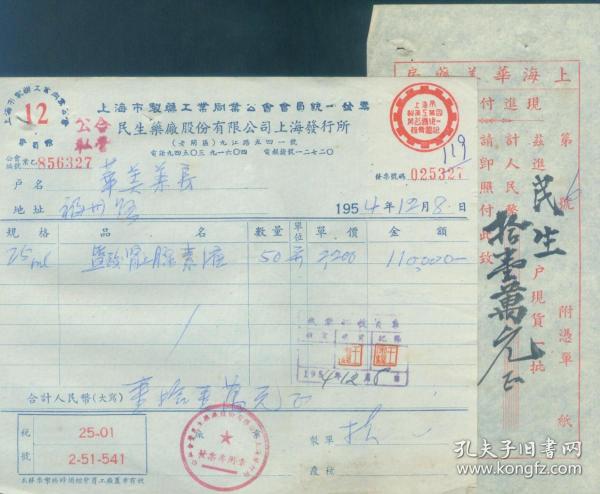 12
公私合營
上海市製藥工業同業公會會員統一發票
民生藥廠股份有限公司上海發行所
(老閘區)九江路五四一號
公會編號 業乙 856327
119
發票號碼 025327
戶名 華美藥房
地址 福州路
1954年12月8日
規格 品名 數量 單位 單價 金額
25ml 鹽酸腎上腺素液 50 2,200 110,000-
1954年12月8日
合計人民幣(大寫) 壹拾壹萬元正
稅號 25-01
2-51-541
製單
產校
上海華美藥房
現進付
第 號 附憑單 紙
茲進 民生 戶現貨一批
計人民幣 拾壹萬元正
請卽照付此致
孔夫子旧书网
www.kongfz.com